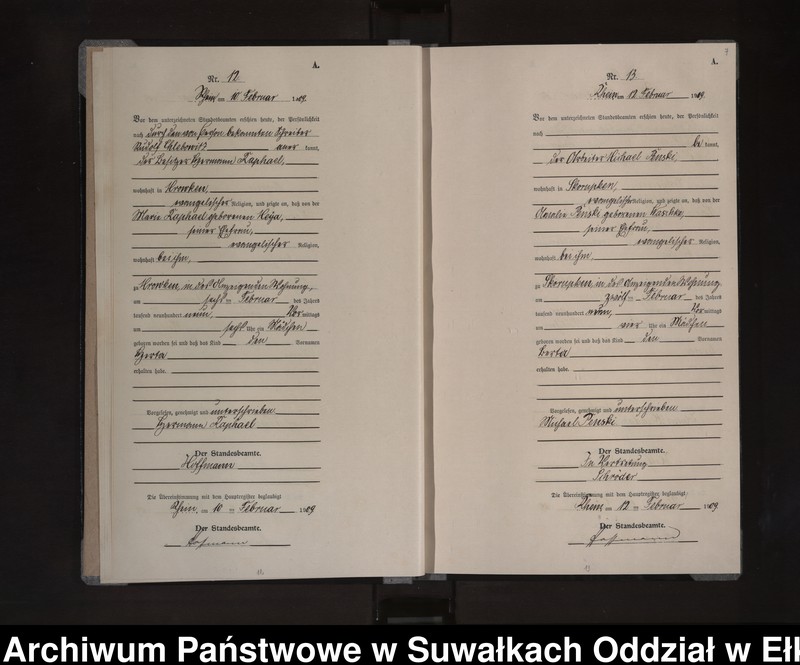 A.
Nr. 12
Rhein am 10 Februar 1909.
Vor dem unterzeichneten Standesbeamten erschien heute, der Persönlichkeit
nach durch den von Person bekannten Schreiber
Rudolf Chlebowitz anerkannt,
der Besitzer Hermann Raphael,
wohnhaft in Wrowken,
evangelischer Religion, und zeigte an, daß von der
Marie Raphael geborenen
seiner Ehefrau,
evangelischer Religion,
wohnhaft bei ihm,
zu Wrowken, in des Anzeigenden Wohnung,
am sechs ten Februar des Jahres
tausend neunhundert neun, Vor mittags
um sechs Uhr ein Mädchen
geboren worden sei und daß das Kind den Vornamen
Herta
erhalten habe.
Vorgelesen, genehmigt und unterschrieben
Hermann Raphael
Der Standesbeamte.
Hoffmann
Die Übereinstimmung mit dem Hauptregister beglaubigt
Rhein, am 10 ten Februar 1909.
Der Standesbeamte.
Hoffmann
9
A.
Nr. 13
Rhein am 12 Februar 1909.
Vor dem unterzeichneten Standesbeamten erschien heute, der Persönlichkeit
nach
be kannt,
der Michael Penski
wohnhaft in Skorupken,
evangelischer Religion, und zeigte an, daß von der
Penski geborenen
seiner Ehefrau,
evangelischer Religion,
wohnhaft bei ihm
zu Skorupken, in des Anzeigenden Wohnung
am zwölf ten Februar des Jahres
tausend neunhundert neun, Vor mittags
um vier Uhr ein Mädchen
geboren worden sei und daß das Kind den Vornamen
Berta
erhalten habe.
Vorgelesen, genehmigt und unterschrieben
Michael Penski
Der Standesbeamte.
In Vertretung
Schröder
Die Übereinstimmung mit dem Hauptregister beglaubigt
Rhein am 12 ten Februar 1909.
Der Standesbeamte.
Hoffmann
Archiwum Państwowe w Suwałkach Oddział w Ełk